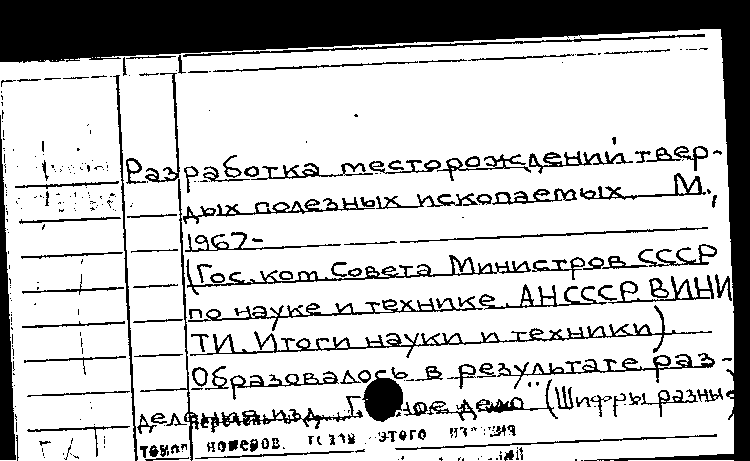 Разработка месторождений твер-
дых полезных ископаемых. М.,
1967-
(Гос. ком. Совета Министров СССР
по науке и технике. АН СССР ВИНИ
ТИ. Итоги науки и техники).
Образовалось в результате раз-
деления изд. дело" (Шифры разные
номеров. этого